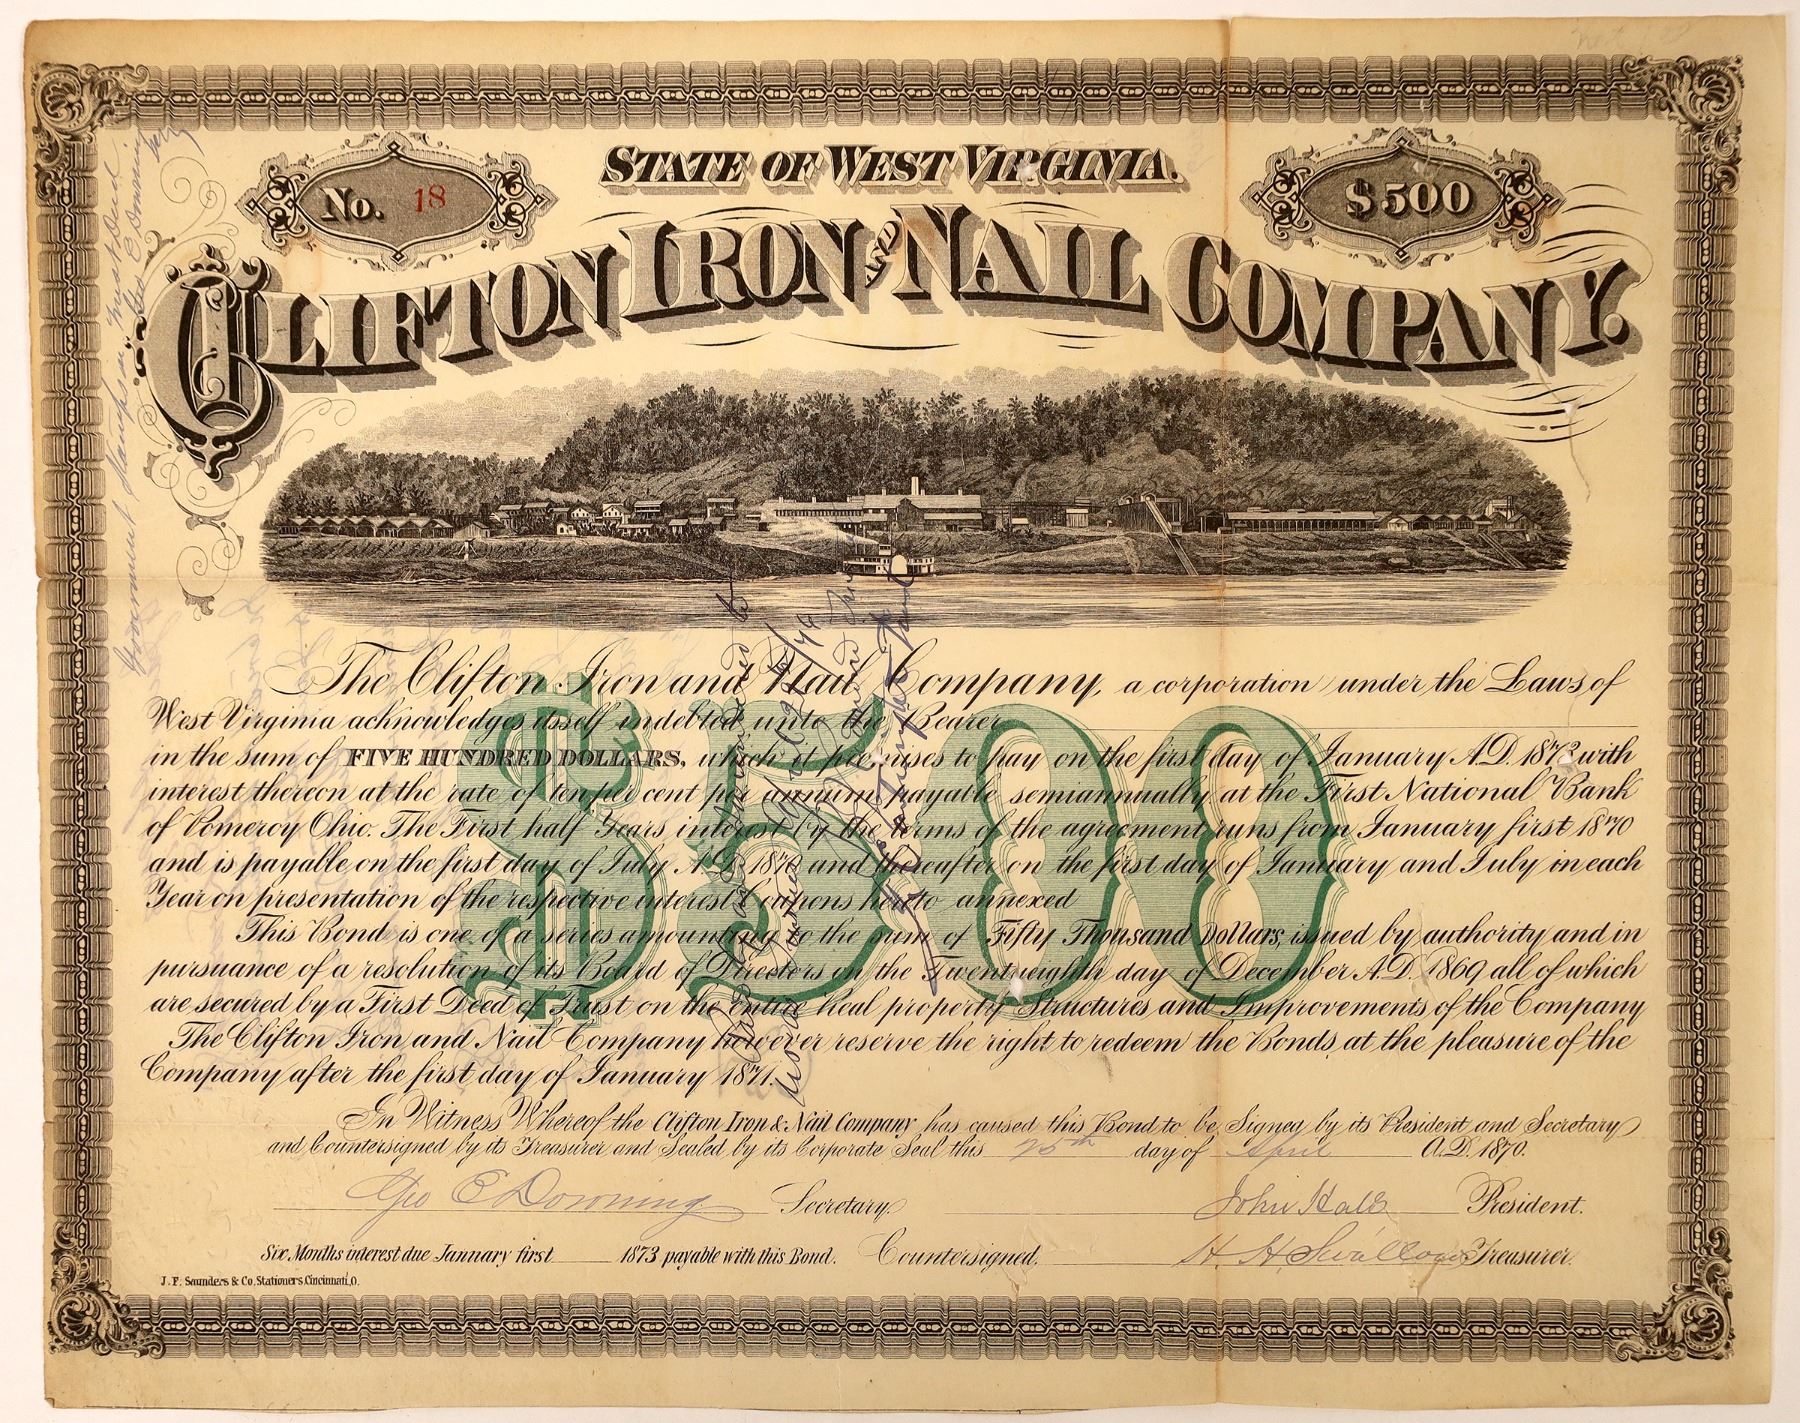 STATE OF WEST VIRGINIA.
No. 18
$500
CLIFTON IRON AND NAIL COMPANY.
Government Stamps on Trust Deed.
Geo C Downing
Secy
The Clifton Iron and Nail Company, a corporation under the Laws of
West Virginia acknowledges itself indebted unto the Bearer
in the sum of FIVE HUNDRED DOLLARS, which it promises to pay on the first day of January A.D. 1873 with
interest thereon at the rate of ten per cent per annum payable semiannually at the First National Bank
of Pomeroy Ohio. The First half Years interest by the terms of the agreement runs from January first 1870
and is payable on the first day of July A.D. 1870 and thereafter on the first day of January and July in each
Year on presentation of the respective interest Coupons hereto annexed
This Bond is one of a series amounting to the sum of Fifty Thousand Dollars, issued by authority and in
pursuance of a resolution of its Board of Directors on the Twenty eighth day of December A.D. 1869 all of which
are secured by a First Deed of Trust on the entire Real property Structures and Improvements of the Company
The Clifton Iron and Nail Company however reserve the right to redeem the Bonds at the pleasure of the
Company after the first day of January 1871.
$500
In Witness Whereof the Clifton Iron & Nail Company has caused this Bond to be Signed by its President and Secretary
and Countersigned by its Treasurer and Sealed by its Corporate Seal this 25th day of April A.D. 1870.
Geo C Downing Secretary. John Hall President.
Six Months interest due January first 1873 payable with this Bond. Countersigned. H. H. Swallow Treasurer.
J. F. Saunders & Co. Stationers Cincinnati, O.